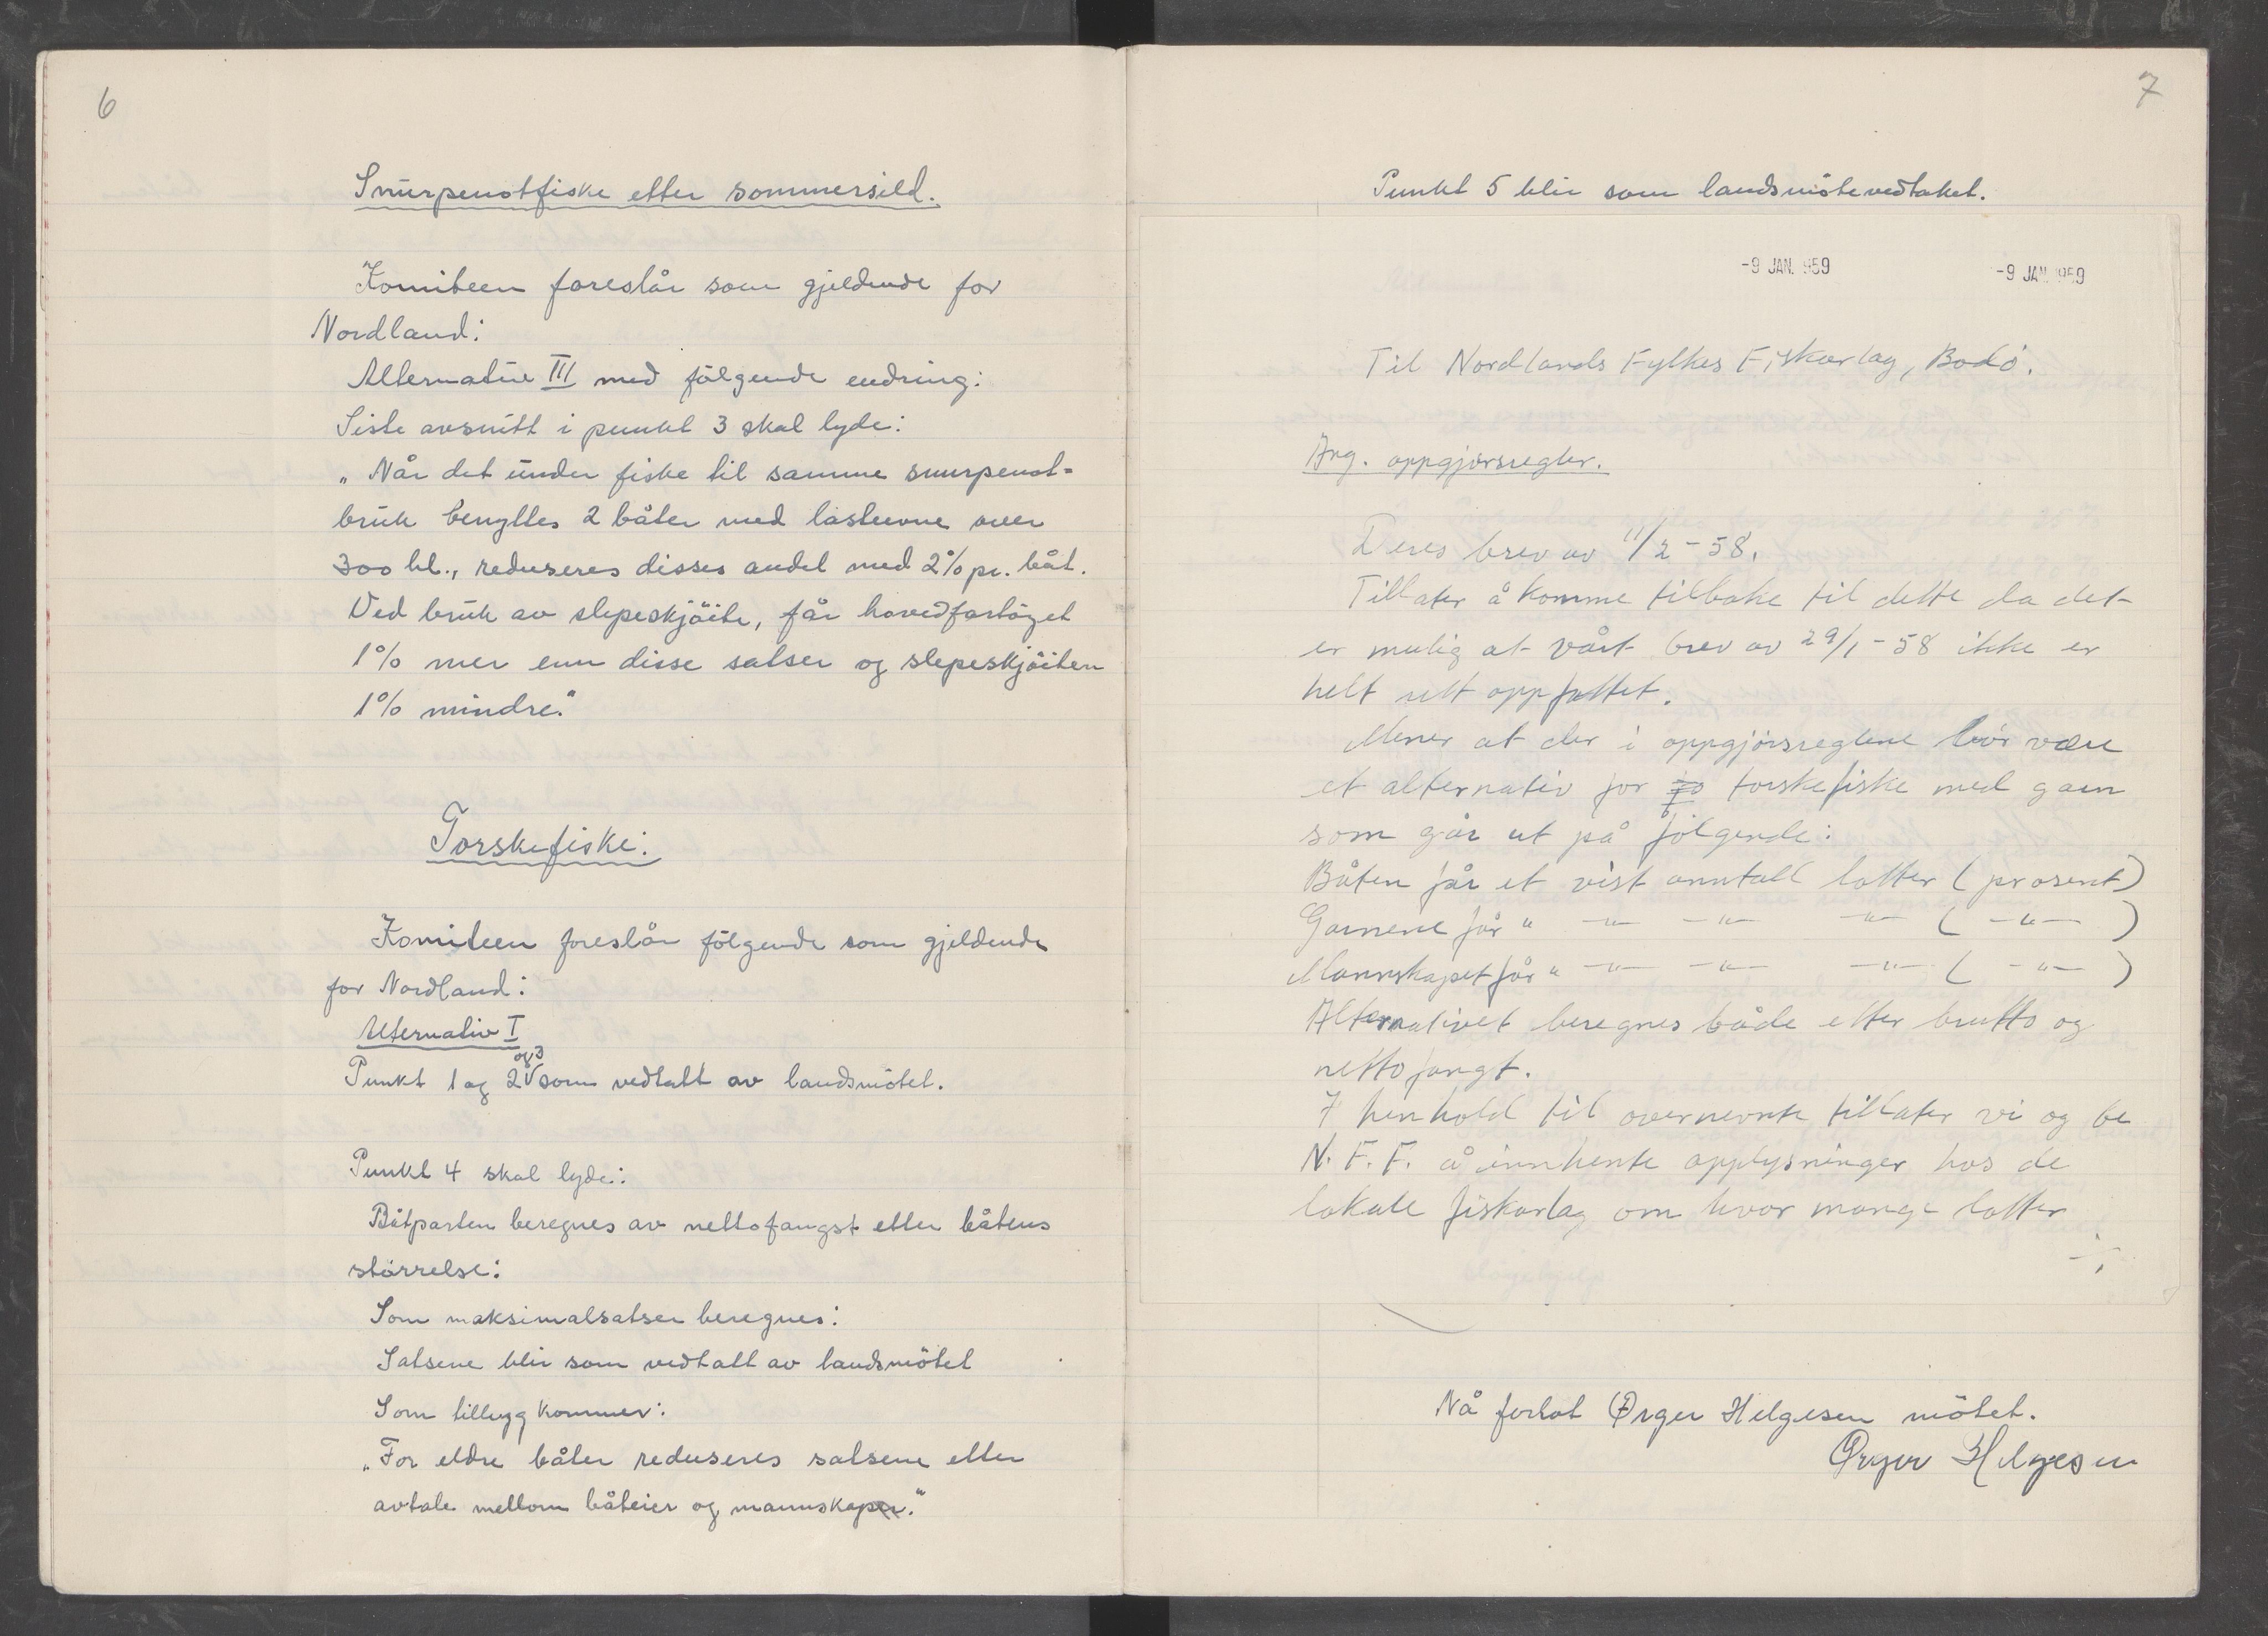 6
Snurpenotfiske etter sommersild.
Komiteen foreslår som gjeldende for
Nordland:
Alternativ III med følgende endring:
Siste avsnitt i punkt 3 skal lyde:
„Når det under fiske til samme snurpenot-
bruk benyttes 2 båter med lasteevne over
300 hl., reduseres disses andel med 2% pr. båt.
Ved bruk av slepeskjöite, får hovedfartöyet
1% mer enn disse satser og slepeskjöiten
1% mindre."
Torskefiske:
Komiteen foreslår fölgende som gjeldende
for Nordland:
Alternativ I
Punkt 1 og 2 og 3 som vedtatt av landsmötet.
Punkt 4 skal lyde:
Båtparten beregnes av nettofangst etter båtens
störrelse:
Som maksimalsatser beregnes:
Satsene blir som vedtatt av landsmötet
Som tillegg kommer:
„For eldre båter reduseres satsene etter
avtale mellom båteier og mannskap."
7
Punkt 5 blir som landsmötevedtaket.
-9 JAN. 1959 -9 JAN. 1959
Til Nordlands Fylkes Fiskarlag, Bodö.
Ang. oppgjörsregler.
Deres brev av 11/2-58.
Tillater å komme tilbake til dette da det
er mulig at vårt brev av 29/1-58 ikke er
helt rett oppfattet.
Mener at der i oppgjörsreglene bör være
et alternativ for torskefiske med garn
som går ut på fölgende:
Båten får et vist anntall lotter (prosent)
Garnene får " -"- -"- -"- ( -"- )
Mannskapet får " -"- -"- -"- ( -"- )
Alternativet beregnes både etter brutto og
netto fangt.
I henhold til overnevnte tillater vi og be
N. F. F. å innhente opplysninger hos de
lokale fiskarlag om hvor mange lotter
Nå forlot Ørger Helgesen mötet.
Ørger Helgesen